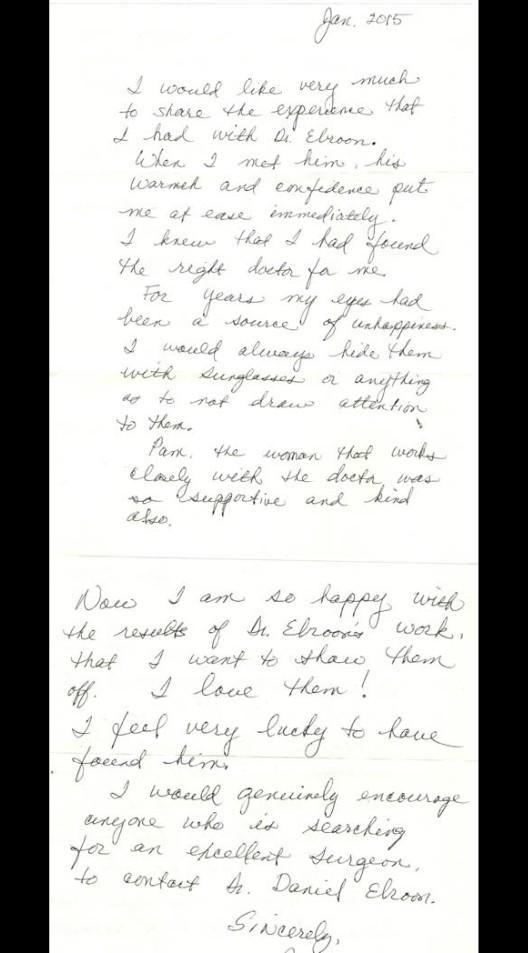 Jan. 2015
I would like very much
to share the experience that
I had with Dr. Elroon.
When I met him, his
warmth and confidence put
me at ease immediately.
I knew that I had found
the right doctor for me.
For years my eyes had
been a source of unhappiness.
I would always hide them
with sunglasses or anything
as to not draw attention
to them.
Pam, the woman that works
closely with the doctor, was
so supportive and kind
also.
Now I am so happy with
the results of Dr. Elroon's work,
that I want to show them
off. I love them!
I feel very lucky to have
found him.
I would genuinely encourage
anyone who is searching
for an excellent surgeon,
to contact Dr. Daniel Elroon.
Sincerely,